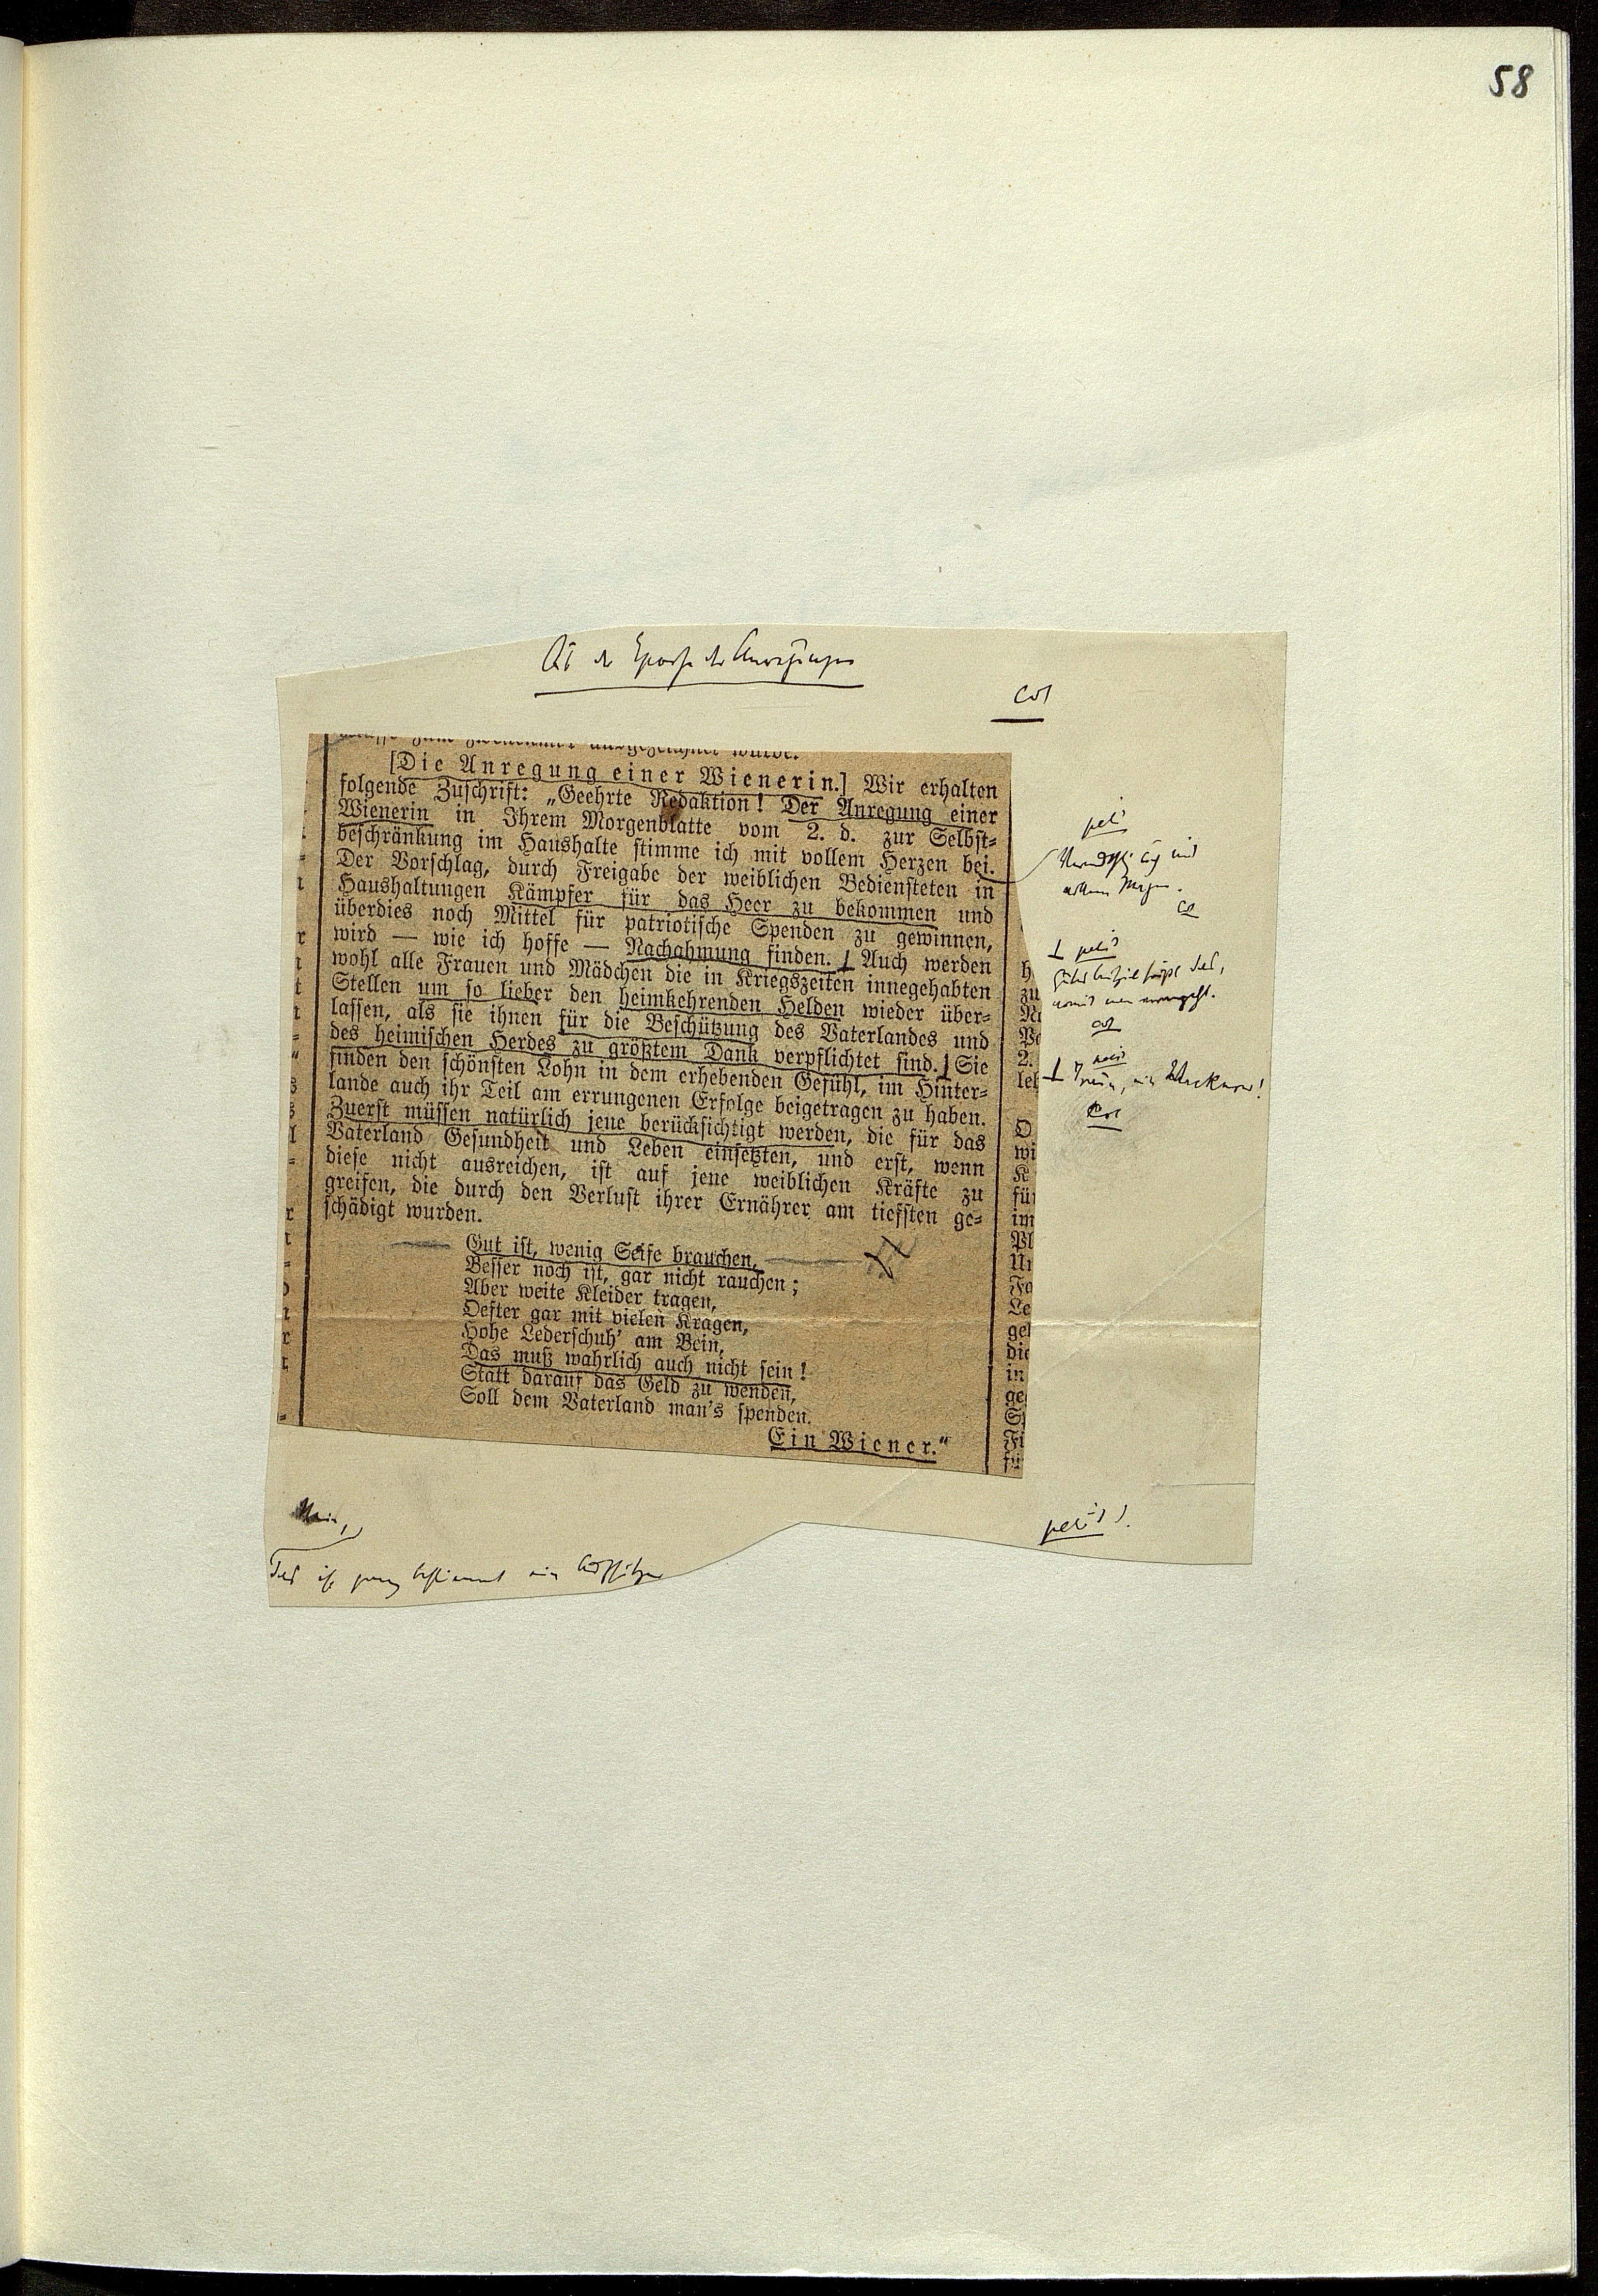 58
Aus der Epoche der Anregungen
cor
[Die Anregung einer Wienerin.] Wir erhalten
folgende Zuschrift: „Geehrte Redaktion! Der Anregung einer
Wienerin in Ihrem Morgenblatte vom 2. d. zur Selbst-
beschränkung im Haushalte stimme ich mit vollem Herzen bei.
Der Vorschlag, durch Freigabe der weiblichen Bediensteten in
Haushaltungen Kämpfer für das Heer zu bekommen und
überdies noch Mittel für patriotische Spenden zu gewinnen,
wird — wie ich hoffe — Nachahmung finden. Auch werden
wohl alle Frauen und Mädchen die in Kriegszeiten innegehabten
Stellen um so lieber den heimkehrenden Helden wieder über-
lassen, als sie ihnen für die Beschützung des Vaterlandes und
des heimischen Herdes zu größtem Dank verpflichtet sind. Sie
finden den schönsten Lohn in dem erhebenden Gefühl, im Hinter-
lande auch ihr Teil am errungenen Erfolge beigetragen zu haben.
Zuerst müssen natürlich jene berücksichtigt werden, die für das
Vaterland Gesundheit und Leben einsetzten, und erst, wenn
diese nicht ausreichen, ist auf jene weiblichen Kräfte zu
greifen, die durch den Verlust ihrer Ernährer am tiefsten ge-
schädigt wurden.
Gut ist, wenig Seife brauchen,
Besser noch ist, gar nicht rauchen;
Aber weite Kleider tragen,
Oefter gar mit vielen Kragen,
Hohe Lederschuh' am Bein,
Das muß wahrlich auch nicht sein!
Statt darauf das Geld zu wenden,
Soll dem Vaterland man's spenden.
Ein Wiener.“
petit
cor
petit
cor
cor
Nein,
Das ist ganz bestimmt ein Aufsitzer
petit